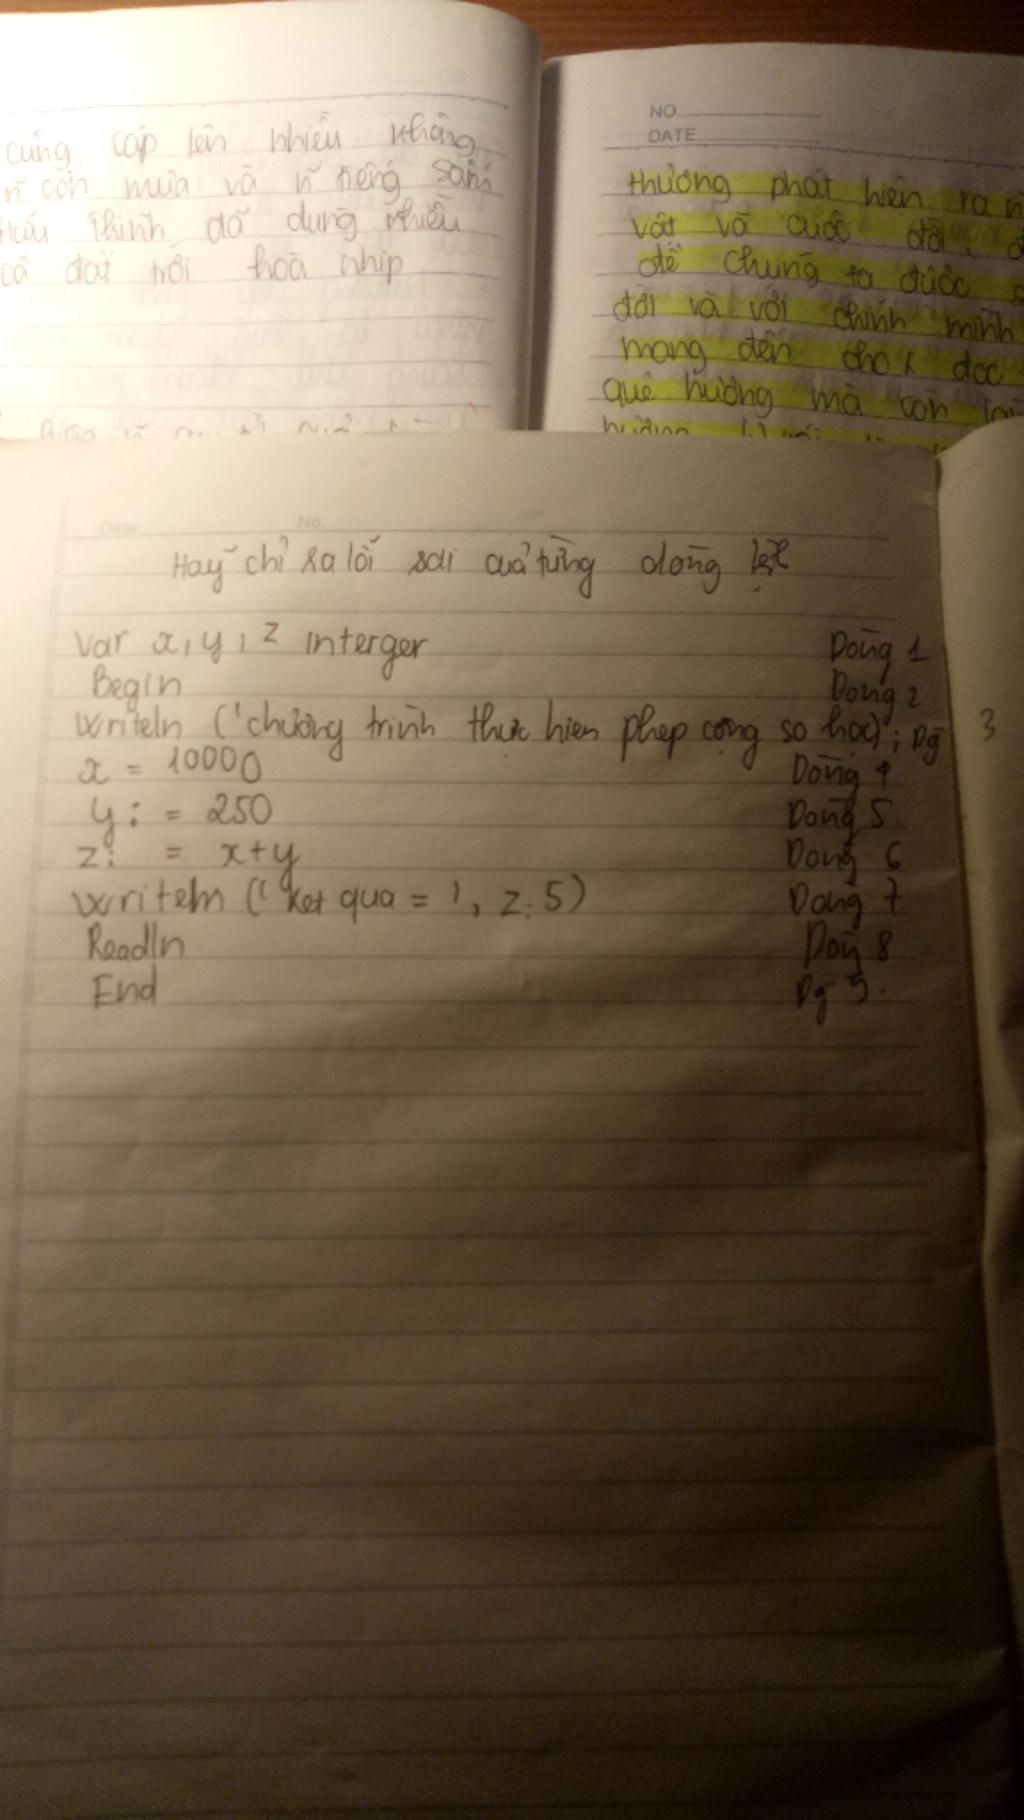 cũng cấp lên nhiều. Không
còn mưa và vì tiếng sấm
Hữu Thỉnh đã dùng nhiều
cả đất trời hoà nhịp
NO
DATE
thường phát hiện ra
vật và cuộc đời,
để chúng ta được
đời và với chính mình
mang đến cho đọc
quê hương mà còn
hương
Date No.
Hãy chỉ ra lỗi sai của từng dòng
Var x, y, z interger Dòng 1
Begin Dòng 2
Writeln ('chương trình thực hien phep cộng so học); Dg 3
x = 10000 Dòng 4
y: = 250 Dòng 5
z: = x+y Dòng 6
Writeln (' ket qua = ', z:5) Dòng 7
Readln Dòng 8
End Dg 9.